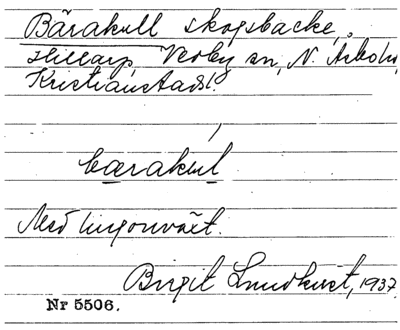 Bärakull skogsbacke,
Hillarp Verby sn, N. Åsbohd,
Kristianstads l.
bærakul
Med lingonväxt.
Birgit Lundkvist, 1937.
Nr 5506.